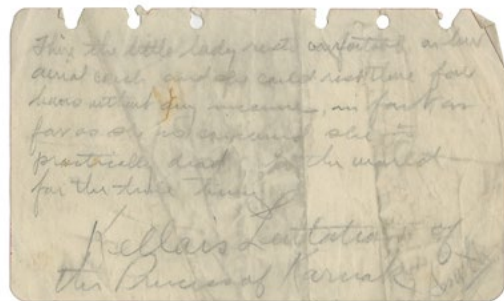 the little lady rests comfortable on her
aerial couch and she could rest there for
hours without any in fact as
far as she is concerned she is
practically dead to the world
for the time
Kellars Levitation of
the Princess of Karnak